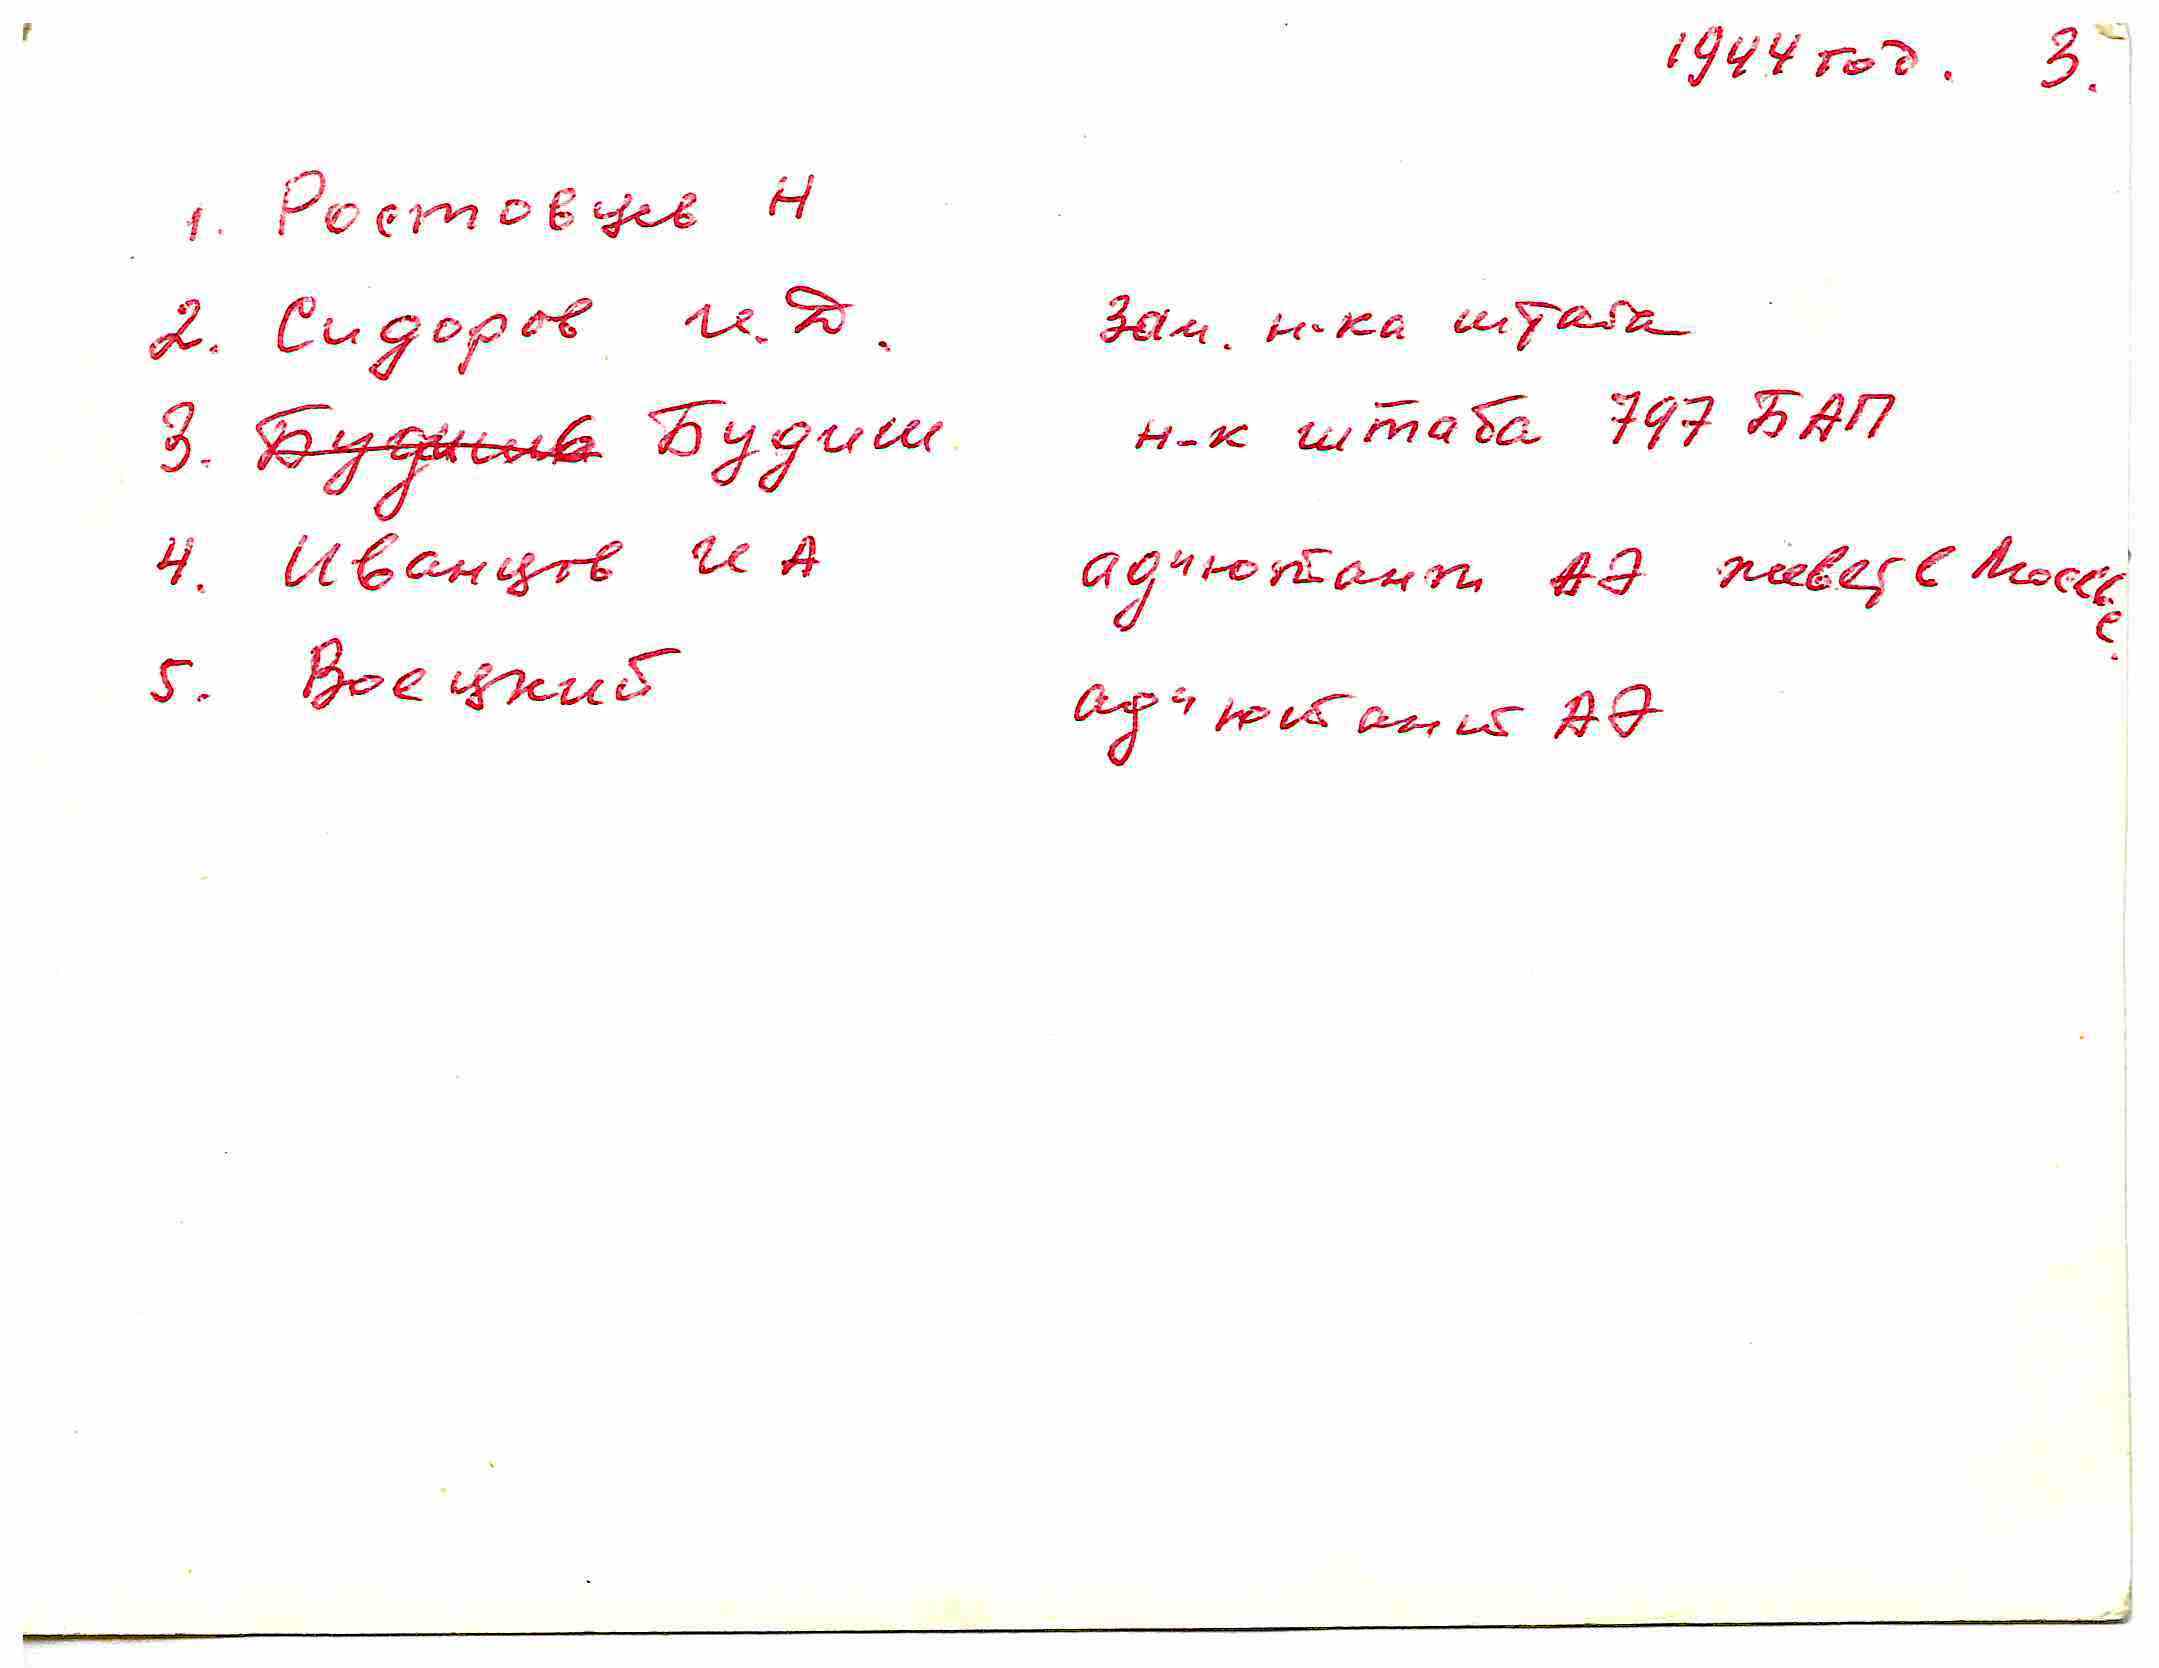 1944 год. 3.
1. Ростовцев Н
2. Сидоров И.Д. Зам. н-ка штаба
3. Будиш н-к штаба 797 БАП
4. Иванцов И А ад"ютант АЭ живет в Москве.
5. Воецкий ад"ютант АЭ